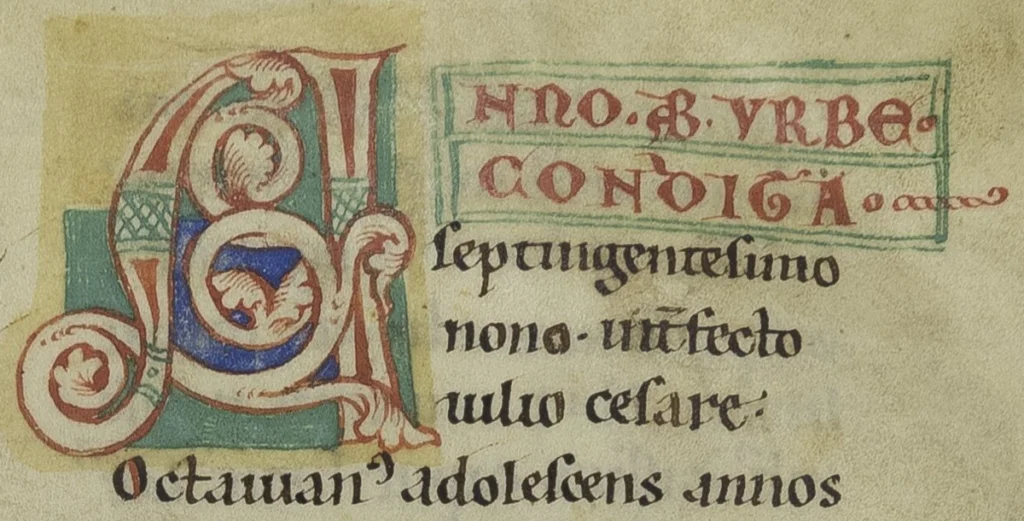 ANNO. AB. VRBE.
CONDIGA
septingentesimo
nono. int̄fecto
iulio cesare.
Octauianꝰ adolescens annos